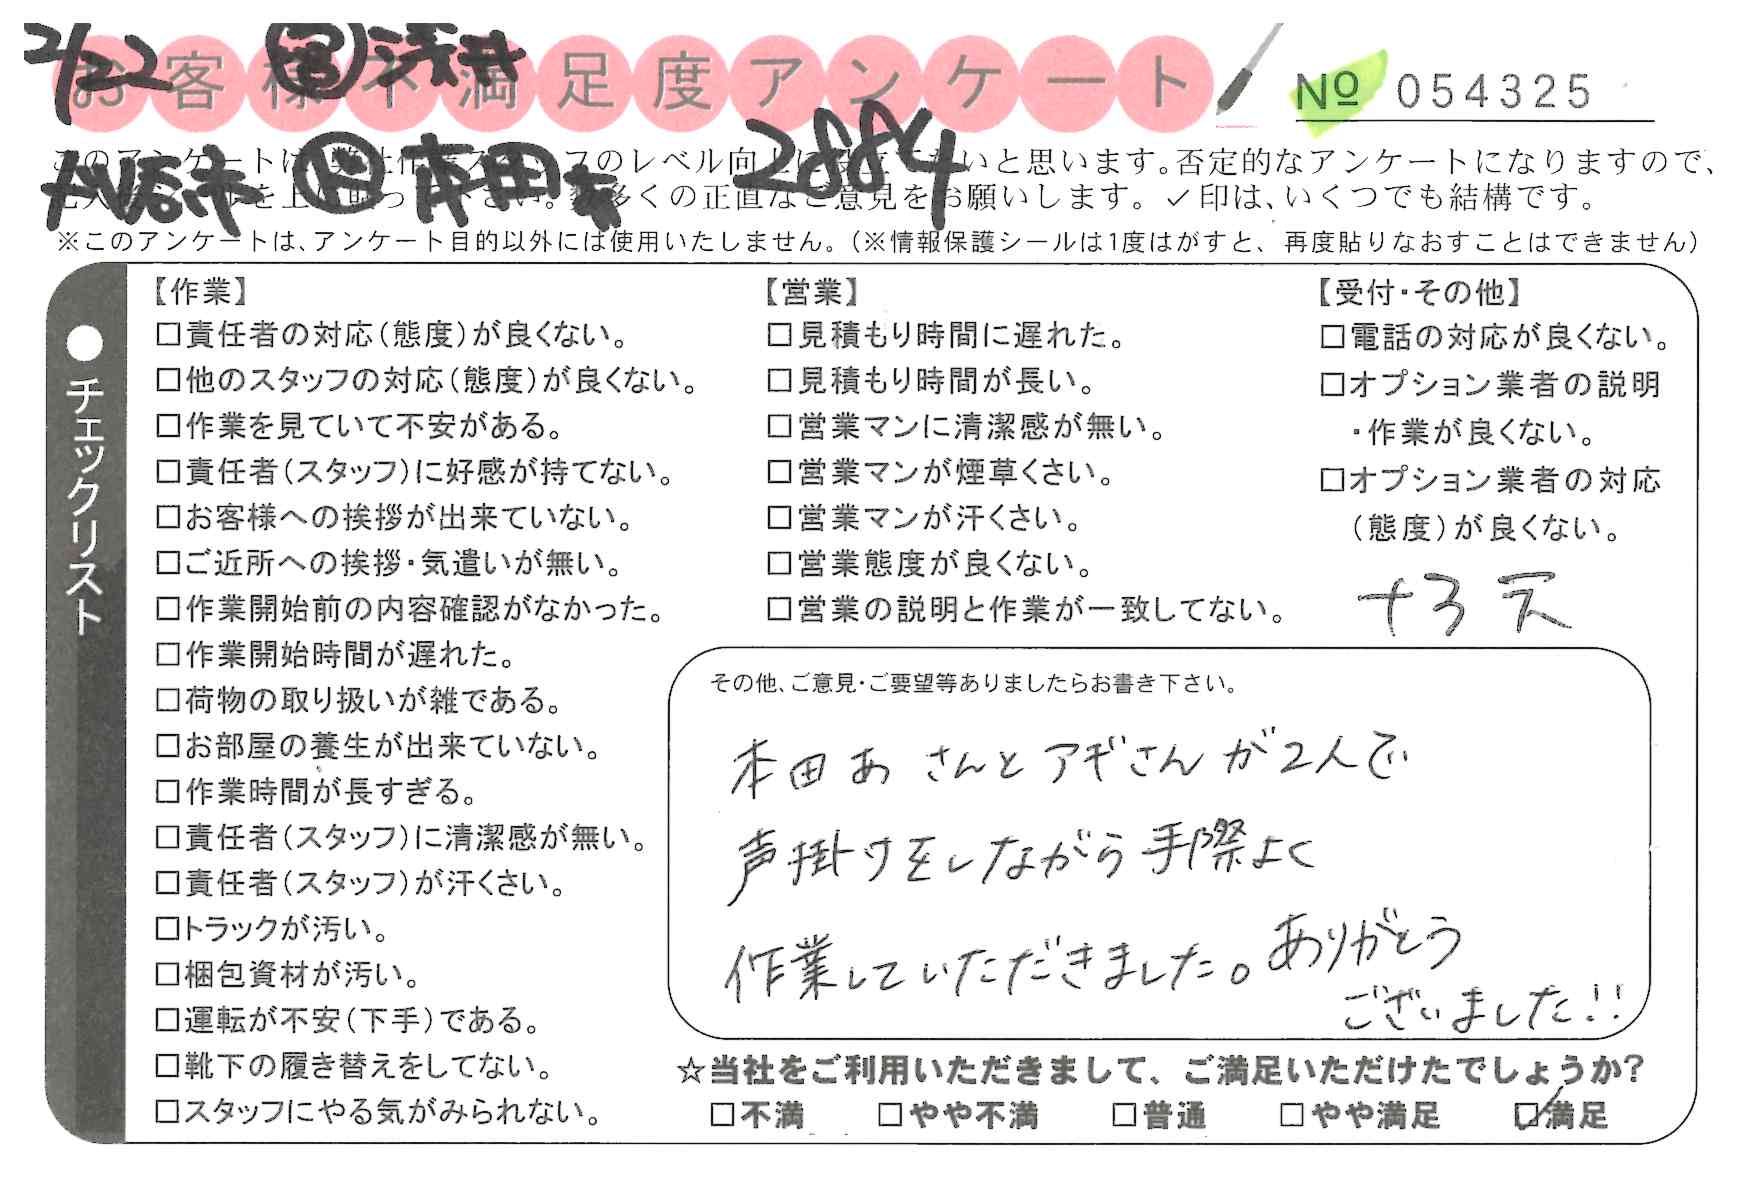 2/22 営 浅井
お客様不満足度アンケート
№ 054325
本田あ 2884
このアンケートは、弊社作業スタッフのレベル向上に役立てたいと思います。否定的なアンケートになりますので、
を上に貼って下さい。数多くの正直なご意見をお願いします。✓印は、いくつでも結構です。
※このアンケートは、アンケート目的以外には使用いたしません。(※情報保護シールは1度はがすと、再度貼りなおすことはできません)
●チェックリスト
【作業】
□責任者の対応(態度)が良くない。
□他のスタッフの対応(態度)が良くない。
□作業を見ていて不安がある。
□責任者(スタッフ)に好感が持てない。
□お客様への挨拶が出来ていない。
□ご近所への挨拶・気遣いが無い。
□作業開始前の内容確認がなかった。
□作業開始時間が遅れた。
□荷物の取り扱いが雑である。
□お部屋の養生が出来ていない。
□作業時間が長すぎる。
□責任者(スタッフ)に清潔感が無い。
□責任者(スタッフ)が汗くさい。
□トラックが汚い。
□梱包資材が汚い。
□運転が不安(下手)である。
□靴下の履き替えをしてない。
□スタッフにやる気がみられない。
【営業】
□見積もり時間に遅れた。
□見積もり時間が長い。
□営業マンに清潔感が無い。
□営業マンが煙草くさい。
□営業マンが汗くさい。
□営業態度が良くない。
□営業の説明と作業が一致してない。
【受付・その他】
□電話の対応が良くない。
□オプション業者の説明
・作業が良くない。
□オプション業者の対応
(態度)が良くない。
その他、ご意見・ご要望等ありましたらお書き下さい。
本田あさんとアギさんが2人で
声掛けをしながら手際よく
作業していただきました。ありがとう
ございました!!
☆当社をご利用いただきまして、ご満足いただけたでしょうか?
□不満 □やや不満 □普通 □やや満足 ☑満足